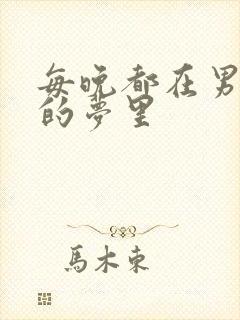 每晚都在男
的夢里
馬木東